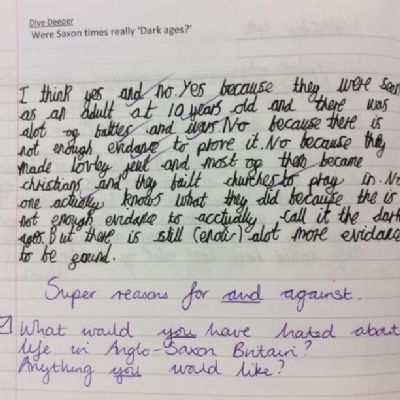 Dive Deeper
Were Saxon times really 'Dark ages?'
I think yes and no. Yes because they were seen
as an adult at 10 years old and there was
alot og battles and wars. No because there is
not enough evidance to prove it. No because they
made lovley and most og them became
christians and they built churches to pray in. No
one actually knows what they did because the is
not enough evidance to acctually call it the dark
ages. But there is still alot more evidance
to be gound.
Super reasons for and against.
What would you have hated about
life in Anglo-Saxon Britain?
Anything you would like?